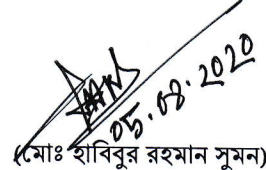 05.08.2020
(মোঃ হাবিবুর রহমান সুমন)